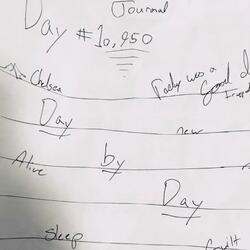 Journal
Day #10,950
Chelsea
Today was a Good
Day
new
Alive by
Day
sleep